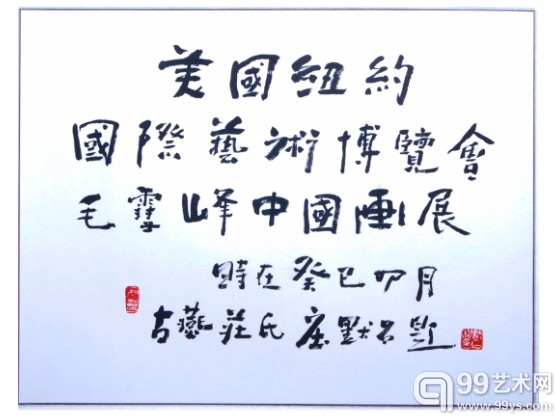 美國紐約
國際藝術博覽會
毛雪峰中國畫展
時在癸巳卯月
古燕莊氏 默 題
99艺术网
www.99ys.com